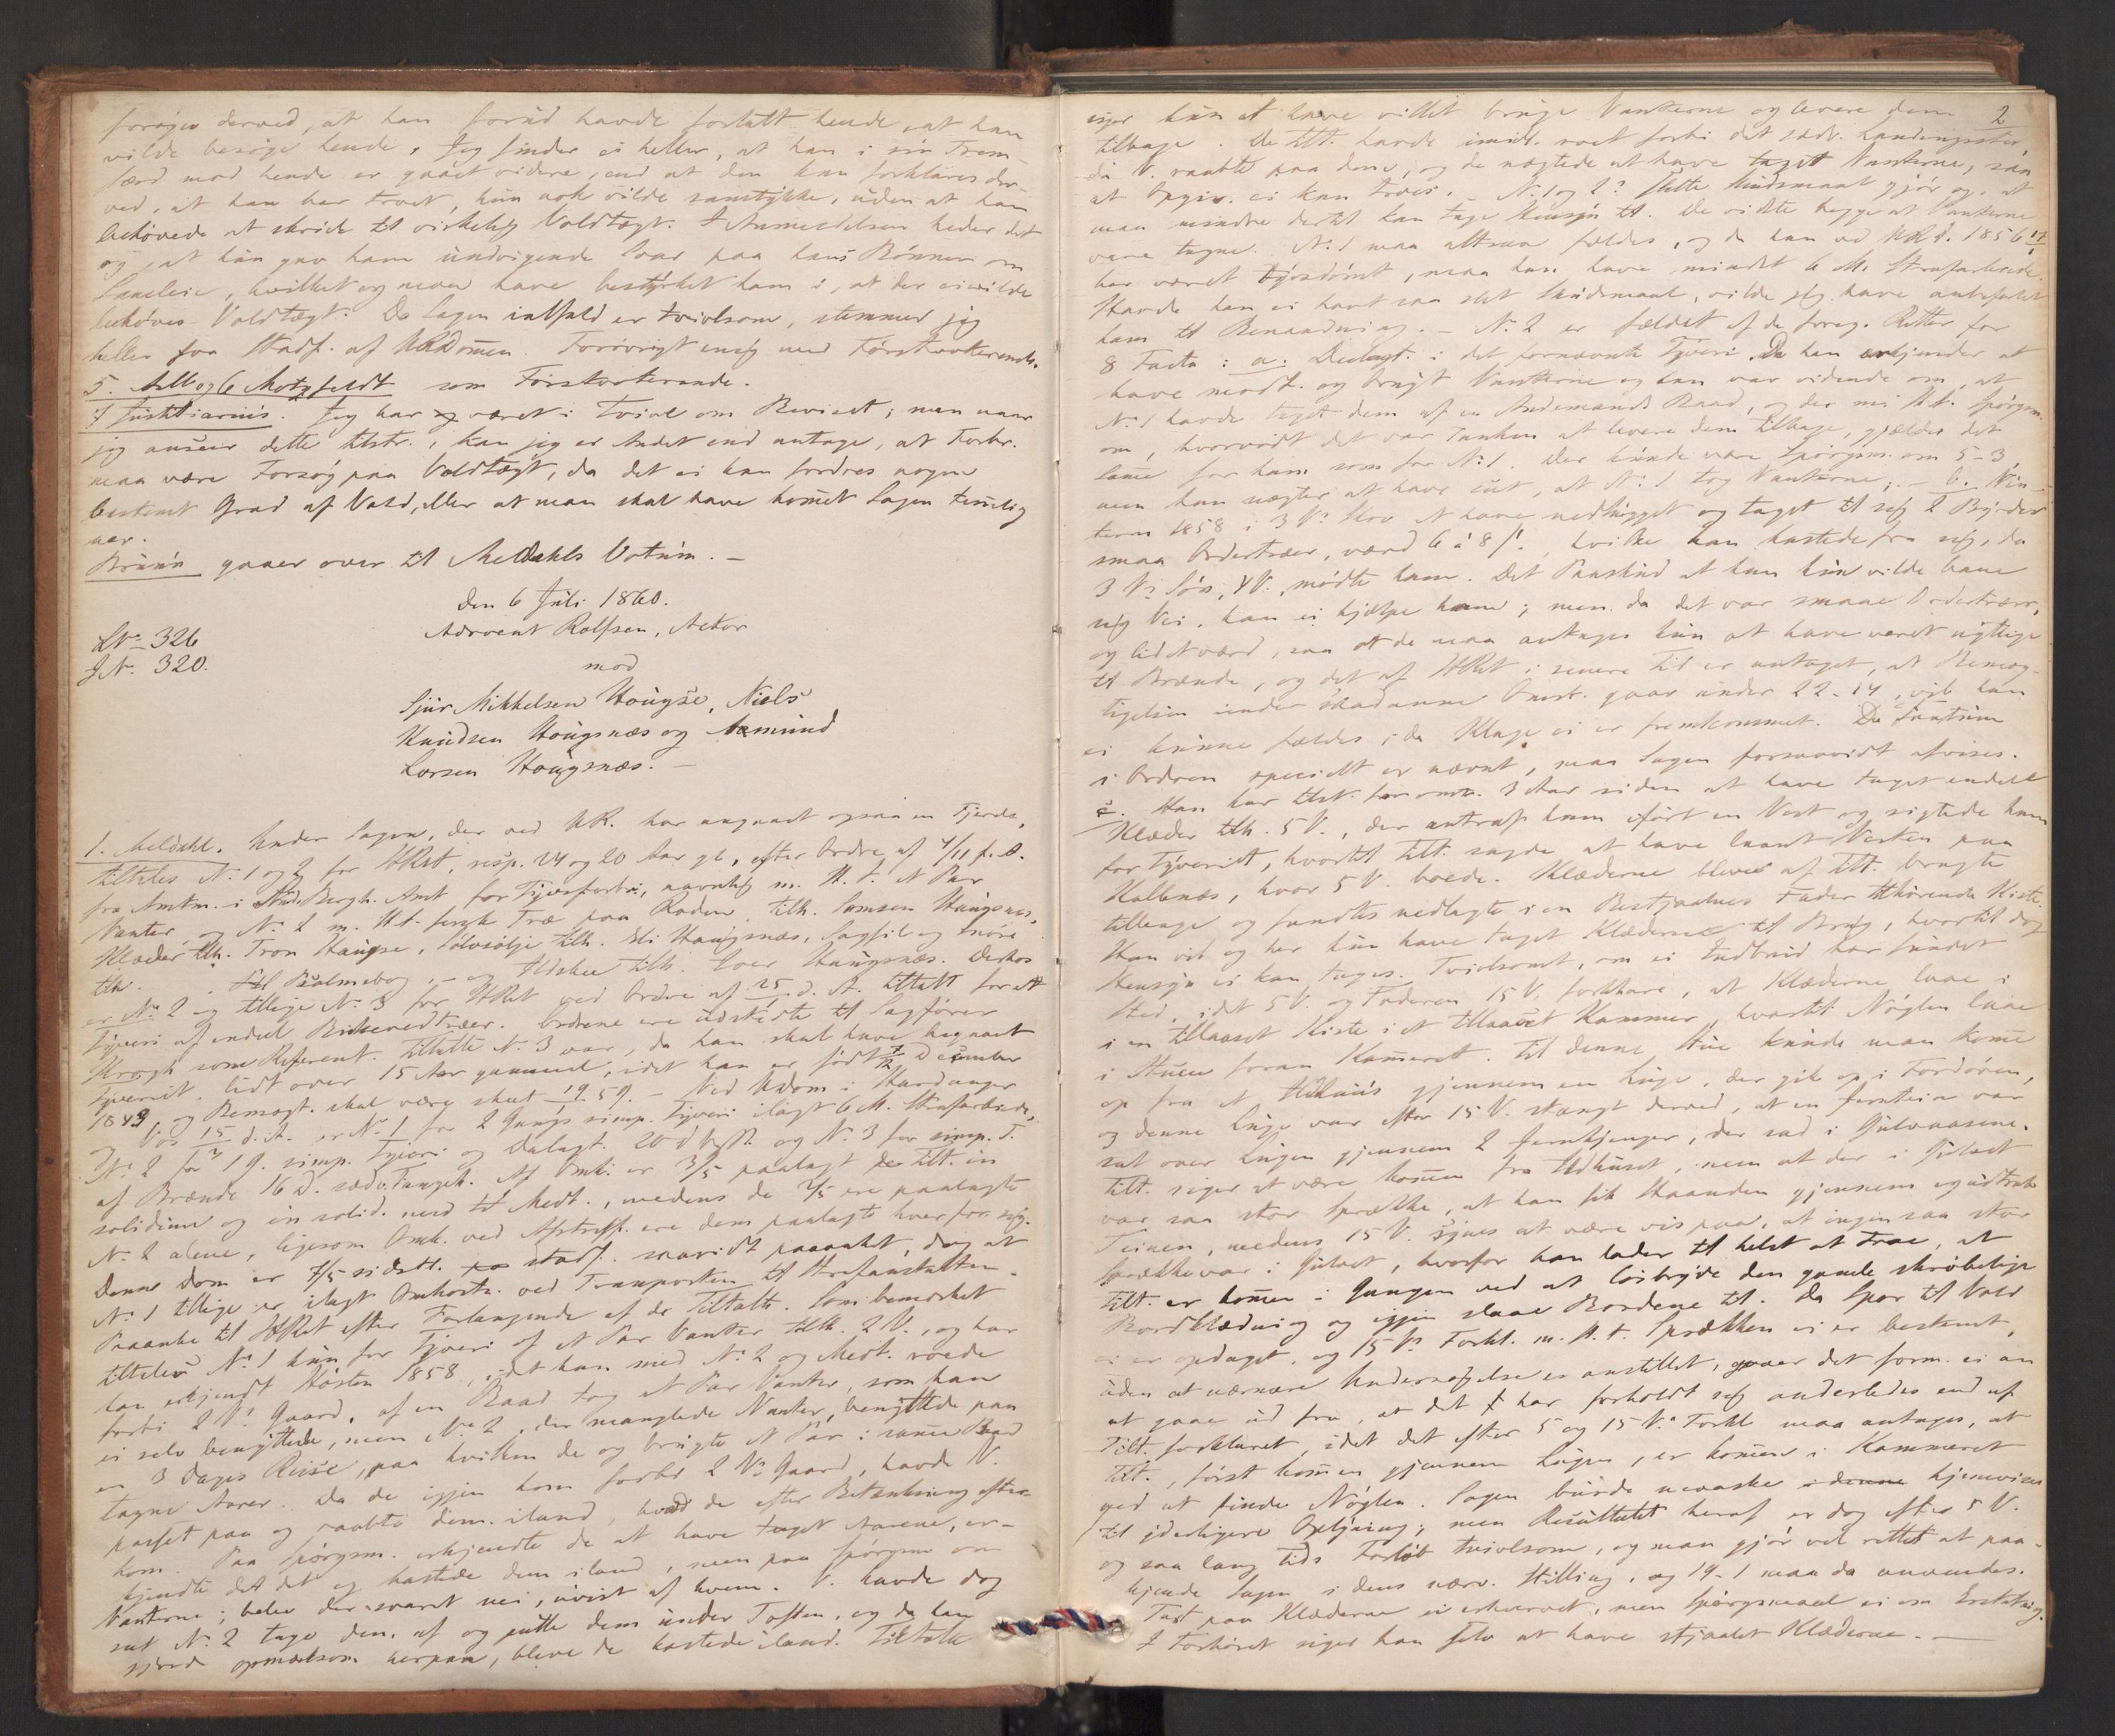 forøges derved, at han forud havde fortalt hende, at han
vilde besøge hende. Jeg finder ei heller, at han i sin Frem-
færd mod hende er gaaet videre, end at den kan forklares der-
ved, at han har troet, hun nok vilde samtykke, uden at han
behøvede at skride til virkelig Voldtægt. I Anmeldelsen heder det
og, at hun gav ham undvigende Svar paa hans Bønner om
Samleie, hvilket og maa have bestyrket ham i, at der ei vilde
behøves Voldtægt. Da Sagen ialfald er tvivlsom, stemmer jeg
heller for Stadf. af URDommen. Forøvrigt enig med Førstvoterende.
5. og 6 Motzfeldt som Førstvoterende.
7 Justitiarius. Jeg har og været i Tvivl om Beviset; men naar
jeg anseer dette tilstr., kan jeg ei Andet end antage, at Forbr.
maa være Forsøg paa Voldtægt, da det ei kan fordres nogen
bestemt Grad af Vold, eller at man skal have kommet Sagen temmelig
nær.
Bruun gaaer over til Meldahls Votum. —
Den 6 Juli 1860.
LNo 326
J.N. 320.
Advocat Rolfsen, Actor
mod
Sjur Mikkelsen Hougse, Niels
Knudsen Hougsnæs og Aamund
Larsen Hougsnæs. —
1. Meldahl. Under Sagen, der ved UR. har angaaet ogsaa en Fjerde,
tiltales No 1 og 2 for HRet, resp. 24 og 20 Aar gl., efter Ordre af 4/11 f.A.
fra Amtm. i Søndre Bergh. Amt for Tyvsforbr., navnlig m. H. t. et Par
Vanter, og No 2 m. H.t. Træ paa Roden, tilh. Samson Hougsnæs,
Klæder tilh. Tron Hougse, Sølvsølje tilh. Eli Hougsnæs, Sagfil og Snøre
tilh. Psalmebog, – og tilh. Iver Hougsnæs. Derhos
er No 2 og tillige No 3 for HRet ved Ordre af 25 d. A. tiltalt for
Tyveri af endeel Birkevedtræer. Ordrene ere udstedte til Sagfører
Krogh som Referent. Tiltalte No 3 var, da han skal have begaaet
Tyveriet, lidt over 15 Aar gammel, idet han er født 7/12 December
1843 og Bemægt. skal være skeet 19 59. – Ved Udom i Hardanger
og Vos 15 d.A. er No 1 for 2 Gangs simp. Tyveri ilagt 6 M. Strafarbeide,
No 2 for 1 G. simp. Tyveri og Delagt. 20 d VogB. og No 3 for simp. T.
af Brænde 16 D. sædv. Fængsl. Af Omk. er 3/5 paalagt de tilt. in
solidum og in solid. med tilt Medt., medens de 2/5 ere paalagte
No 2 alene, ligesom Omk. ved Afstraff. ere dem paalagte hver for sig.
Denne Dom er 7/5 sidstl. stadf. saavidt paaanket, dog at
No 1 tillige er ilagt Omkostn. ved Transporten til Strafanstalten.
Paaanke til HRet efter Forlangende af de Tiltalte. Som bemærket
tiltales No 1 kun for Tyveri af et Par Vanter tilh. 2 V., og har
han erkjendt Høsten 1858, idet han med No 2 og Medt. roede
forbi 2 Vs Gaard, af en Baad tog et Par Vanter, som han
ei selv benyttede, men No 2, der manglede Vanter, benyttede paa
en 3 Dages Reise, paa hvilken de og brugte et Par i samme Baad
tagne Aarer. Da de igjen kom forbi 2 Vs Gaard, havde V.
passet paa og raabte dem iland, hvad de efter Betænkning efter-
kom. Paa Spørgsm. erkjendte de at have taget Aarene, er-
kjendte det og kastede dem iland, men paa Spørgsm. om
Vanterne, blev der svaret nei, uvist af hvem. V. havde dog
seet No 2 tage dem af og putte dem under Toften, og da han
gjorde opmærksom herpaa, bleve de kastede iland. Tiltalte
2
siger kun at have villet bruge Vanterne og levere dem
tilbage. De tilt. havde imidl. roet forbi det sædv. Landingssted,
da V. raabte paa dem, og de nægtede at have taget Vanterne, saa
at Opgiv. ei kan troes. No 1 og 2s slette Skudsmaal gjør og, at
man mindre dertil kan tage Hensyn til. De vidste begge at Vanterne
vare tagne. No 1 maa altsaa fældes, og da han ved URd. 1856 17
har været tyvsdømt, maa han have mindst 6 M. Strafarbeide.
Havde han ei havt saa slet Skudsmaal, vilde jeg have anbefalet
ham til Benaadning. – No 2 er fældet af de foreg. Retter for
8 Facta: a. Deelagt. i det fornævnte Tyveri. Da han erkjender at
have modt. og brugt Vanterne og han var vidende om, at
No 1 havde taget dem af en Andenmands Baad, og der m. H. t. Spørgsm.
om, hvorvidt det var Tanken at levere dem tilbage, gjælder det
samme for ham som for No 1. Der kunde være Spørgsm. om 5-3,
men han nægter at have seet, at No 1 tog Vanterne; – b. Vin-
teren 1858 i 3 Vs Skov at have nedhugget og taget til sig 2 Byrder
smaa Oretræer, værd 6 à 8 /., hvilke han kastede fra sig, da
3 Vs Søn, 4 V., mødte ham. Det Paaskud at han kun vilde bane
sig Vei, kan ei hjælpe ham; men da det var smaae Oretræer,
og lidet værd, saa at de maa antages kun at have været nyttige
til Brænde, og det af HRet i senere Tid er antaget, at Bemæg-
tigelsen under saadanne Omst. gaar under 22-14, vil han
ei kunne fældes, da Klage ei er fremkommet. Da Factum
i Ordren specielt er nævnt, maa Sagen forsaavidt afvises.
c. Han har tilst. for omtr. 3 Aar siden at have taget endeel
Klæder tilh. 5 V., der antraf ham iført en Vest og sigtede ham
for Tyveriet, hvortil tilt. sagde at have laant Vesten paa
Kallenæs, hvor 5 V. boede. Klæderne bleve af tilt. bragte
tilbage og fandtes nedlagte i en Bestjaalnes Fader tilhørende Kiste.
Han vil og her kun have taget Klæderne til Brug, hvortil dog
Hensyn ei kan tages. Tvivlsomt, om ei Indbrud har fundet
Sted, idet 5 V. og Faderen 15 V. forklare, at Klæderne laae i
i en tillaaset Kiste i et tillaaset Kammer, hvortil Nøglen laae
i Stuen foran Kammeret. Til denne Stue kunde man komme
op fra et Udhuus gjennem en Luge, der gik op i Fordøren,
og denne Luge var efter 15 V. stængt derved, at en Jernteen var
sat over Lugen gjennem 2 Jernkjenger, der sad i Gulvaasene.
Tilt. siger at være kommen fra Udhuset, men at der i Gulvet
var saa stor Sprække, at han fik Haanden gjennem og udtrak
Teinen, medens 15 V. synes at være vis paa, at ingen saa stor
Sprække var i Gulvet, hvorfor han lader til helst at troe, at
tilt. er kommen i Gangen ved at løsbryde den gamle skrøbelige
Bordklædning og igjen slaae Bordene til. Da Spor til Vold
ei er opdaget, og 15 Vs Forkl. m. H. t. Sprækken ei er bestemt,
uden at nærmere Undersøgelse er anstillet, gaaer det form. ei an
at gaae ud fra, at det har forholdt sig anderledes end af
Tilt. forklaret, idet det efter 5 og 15 Vs Forkl. maa antages, at
tilt., først kommen gjennem Lugen, er kommen i Kammeret
ved at finde Nøglen. Sagen burde maaske hjemvises
til yderligere Oplysning; men Resultatet heraf er dog efter 5 V.
og saa lang Tids Forløb tvivlsom, og man gjør vel rettest at paa-
kjende Sagen i dens nærv. Stilling, og 19-1 maa da anvendes.
Taxt paa Klæderne ei erhvervet, men Spørgsmaal ei om Erstatning.
I Forhøret siger han selv at have stjaalet Klæderne. —